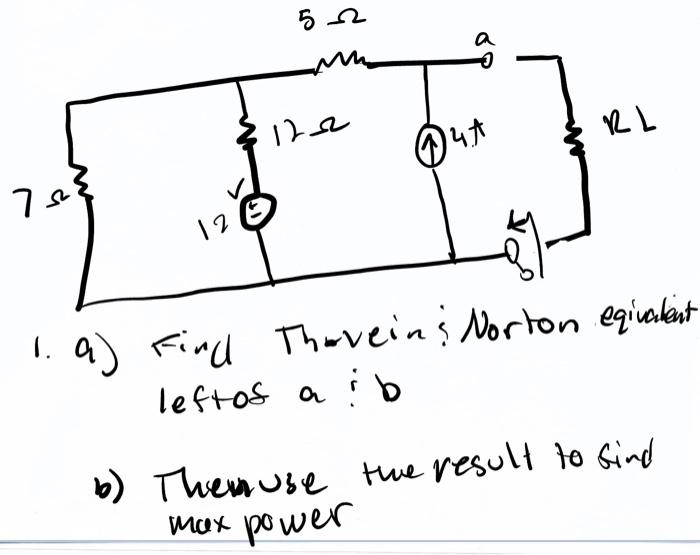 5 Ω
a
12 Ω
4A
RL
7 Ω
V
12
b
1. a) Find Thevein & Norton eqivalent
left of a & b
b) Then use the result to find
max power